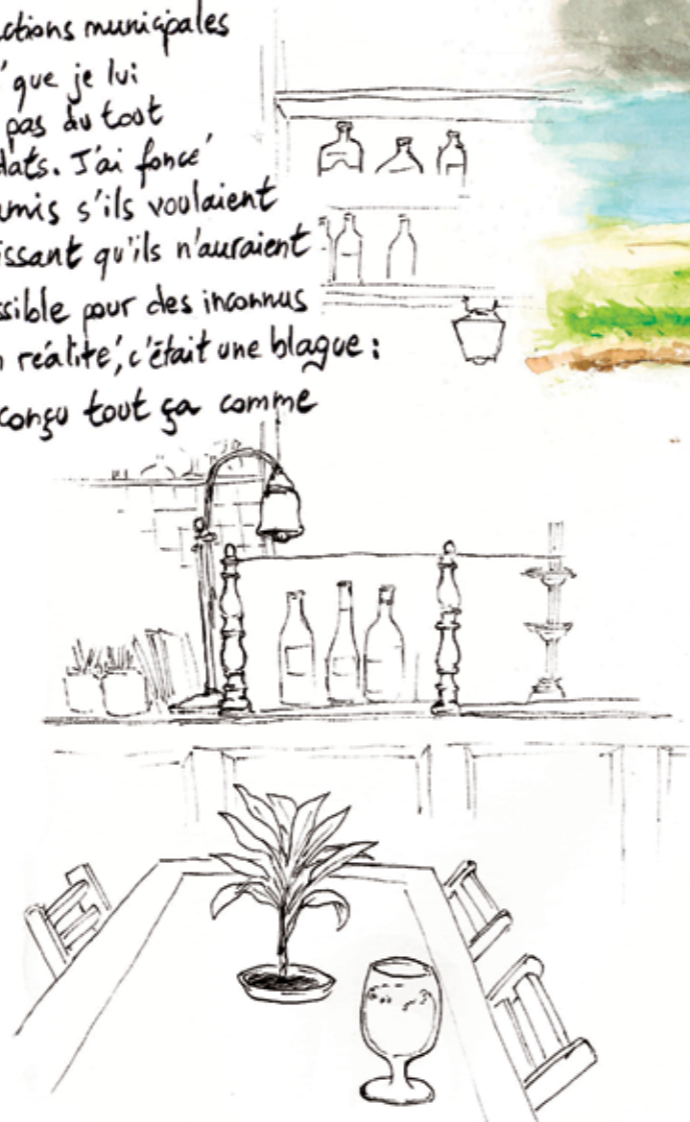 ctions municipales
' que je lui
pas du tout
dats. J'ai foncé
amis s'ils voulaient
issant qu'ils n'auraient
ssible pour des inconnus
n réalité, c'était une blague :
conçu tout ça comme